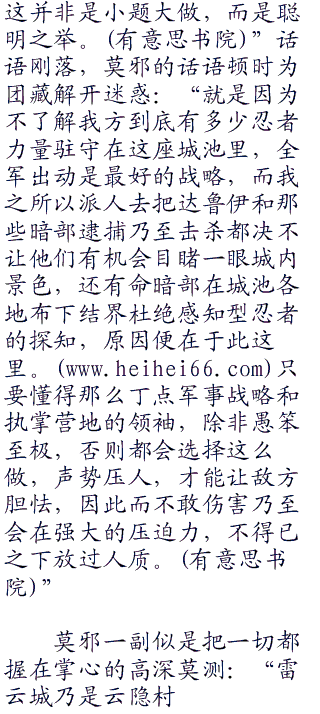 这并非是小题大做，而是聪
明之举。(有意思书院)”话
语刚落，莫邪的话语顿时为
团藏解开迷惑：“就是因为
不了解我方到底有多少忍者
力量驻守在这座城池里，全
军出动是最好的战略，而我
之所以派人去把达鲁伊和那
些暗部逮捕乃至击杀都决不
让他们有机会目睹一眼城内
景色，还有命暗部在城池各
地布下结界杜绝感知型忍者
的探知，原因便在于此这
里。(www.heihei66.com)只
要懂得那么丁点军事战略和
执掌营地的领袖，除非愚笨
至极，否则都会选择这么
做，声势压人，才能让敌方
胆怯，因此而不敢伤害乃至
会在强大的压迫力，不得已
之下放过人质。(有意思书
院)”
莫邪一副似是把一切都
握在掌心的高深莫测：“雷
云城乃是云隐村